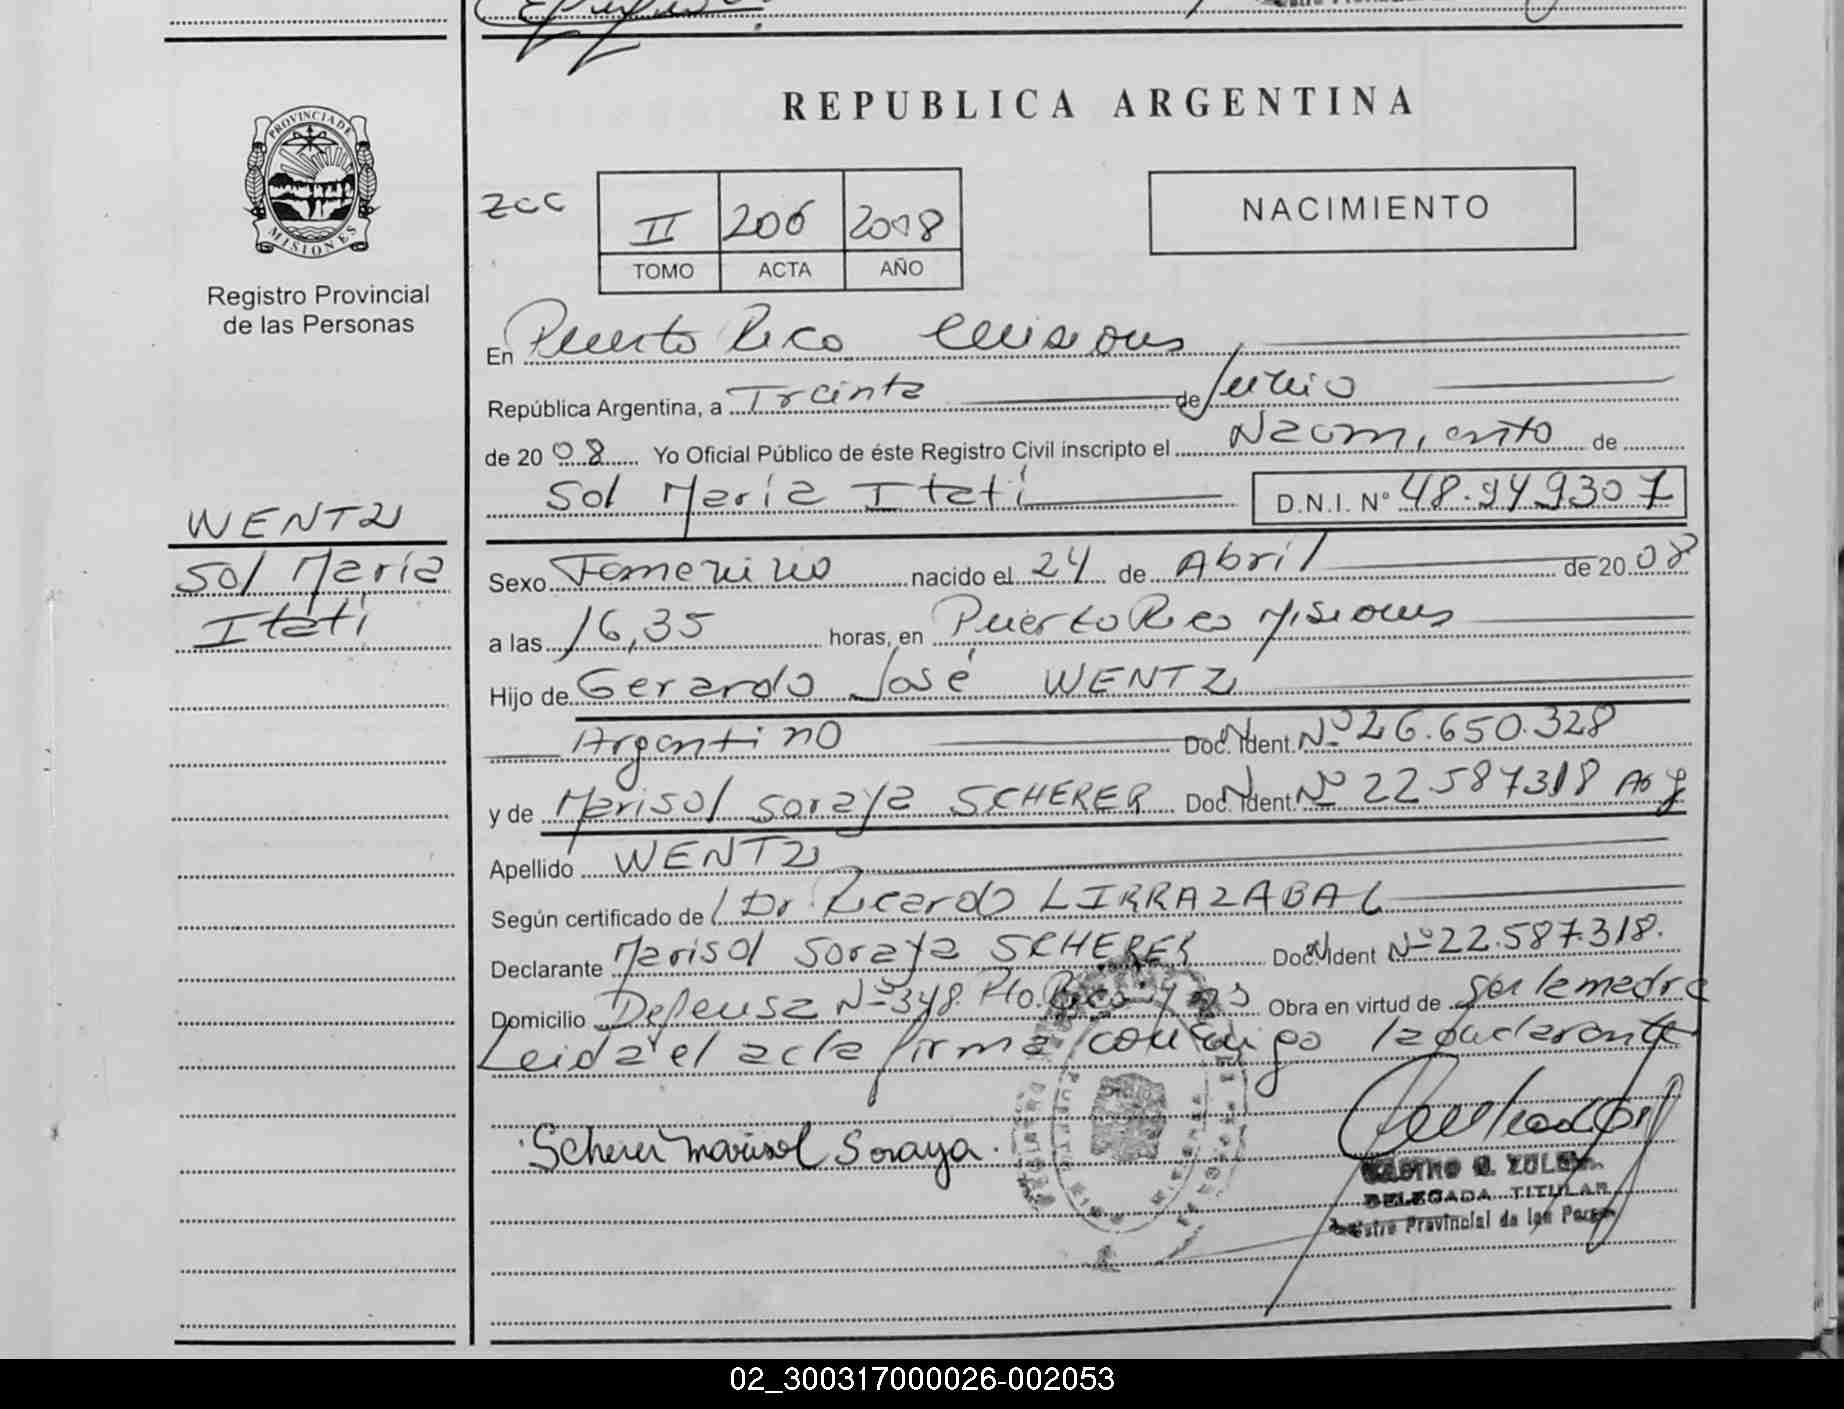 REPUBLICA ARGENTINA
PROVINCIA DE
MISIONES
Registro Provincial
de las Personas
zcc
II 206 2008
TOMO ACTA AÑO
NACIMIENTO
En Puerto Rico Misiones
República Argentina, a Treinta de Junio
de 2008 Yo Oficial Público de éste Registro Civil inscripto el Nacimiento de
Sol María Itatí D.N.I. Nº 48.949307
WENTZ
Sol María
Itatí
Sexo Femenino nacido el 24 de Abril de 2008
a las 16,35 horas, en Puerto Rico Misiones
Hijo de Gerardo José WENTZ
Argentino Doc. Ident. Nº 26.650.328
y de Marisol Soraya SCHERER Doc. Ident. Nº 22.587318 Arg
Apellido WENTZ
Según certificado de Dr Ricardo LIRRAZABAL
Declarante Marisol Soraya SCHERER Doc. Ident Nº 22.587.318.
Domicilio Defensa Nº 348 Pto. Rico Mns Obra en virtud de ser la madre
Leida el acta firma conmigo la declarante
Scherer Marisol Soraya.
DELEGADA TITULAR
Registro Provincial de las Person
02_300317000026-002053